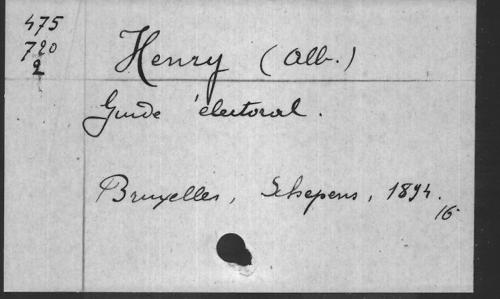 475
720
2
Henry (Alb.)
Guide électoral.
Bruxelles, Schepens, 1894.
16